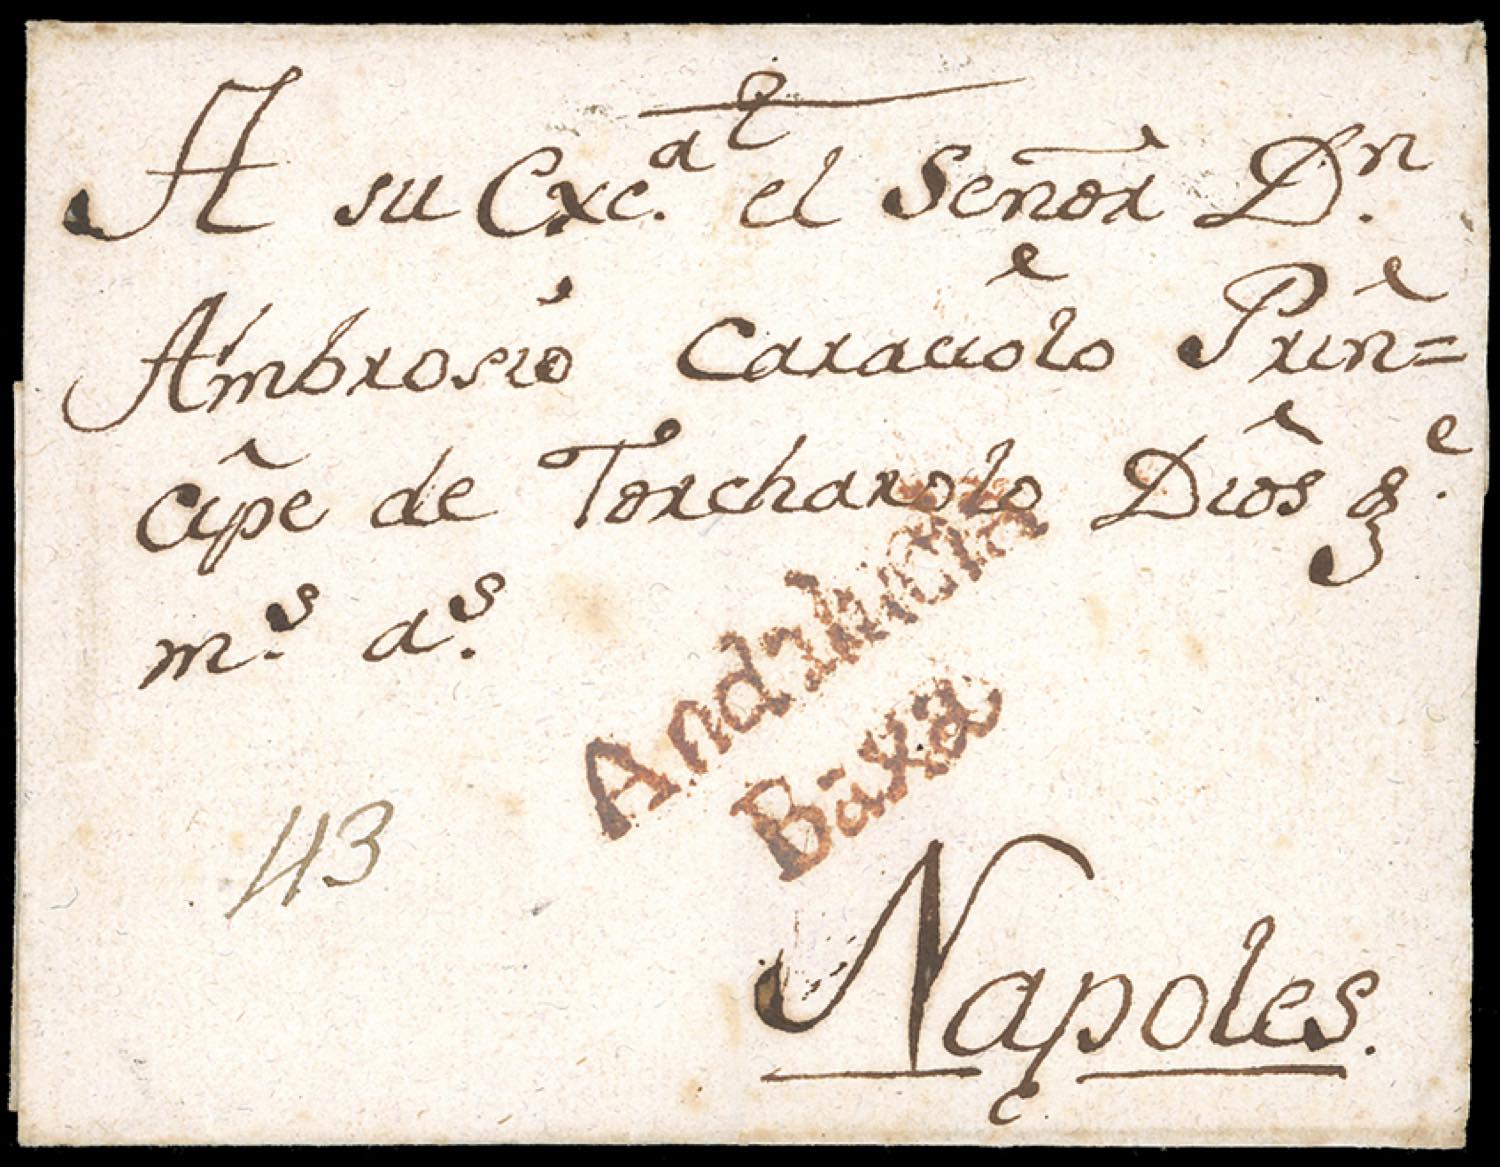 A su Exc.ª el Señor D.n
Ambrosio Caraciolo Prin=
cipe de Torcharolo Dios g.e
m.s a.s
Andalucia
Baxa
43
Napoles.